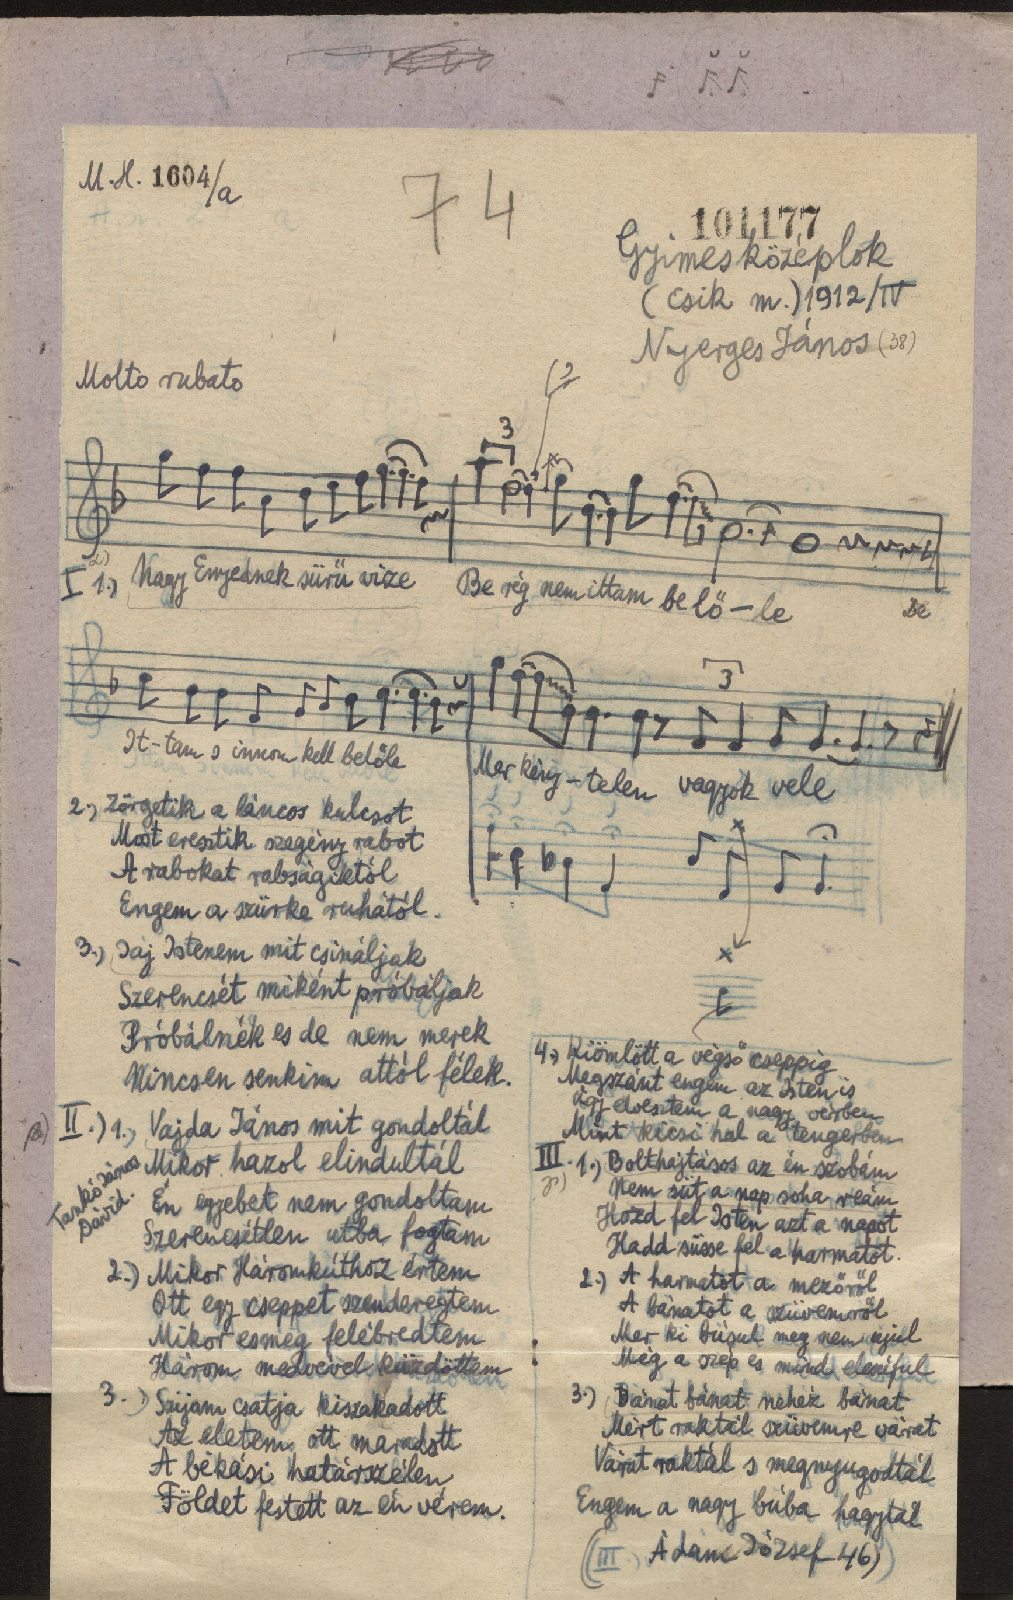 M.H. 1604/a
74
101177
Gyimesközéplok
(Csik m.) 1912/IV
Nyerges János (38)
Molto rubato
3
I 1.) Nagy Enyednek sürü vize Be rég nem ittam belő–le De
3
It-tam s innom kell belőle Mer kény-telen vagyok vele
2.) Zörgetik a láncos kulcsot
Most eresztik szegény rabot
A rabokat rabságiktól
Engem a szürke ruhától.
3.) Jáj Istenem mit csináljak
Szerencsét miként próbáljak
Próbálnék es de nem merek
Nincsen senkim attól félek.
II.) 1., Vajda János mit gondoltál
Mikor hazol elindultál
Én egyebet nem gondoltam
Szerencsétlen utba fogtam
Tankó János
Dávid.
2.) Mikor Háromkúthoz értem
Ott egy cseppet szenderegtem
Mikor esmég felébredtem
Három medvével küzdöttem
3.) Szijam csatja kiszakadott
Az életem ott maradott
A békási határszélen
Földet festett az én vérem.
4.) Kiömlött a végső cseppig
Megszánt engem az Isten is
Ugy elvesztem a nagy vérben
Mint kicsi hal a tengerben
III. 1.) Bolthajtásos az én szobám
Nem süt a nap soha reám
Hozd fel Isten azt a napot
Hadd süsse fel a harmatot.
2.) A harmatot a mezőről
A bánatot a szüvemről
Mer ki búsul meg nem ujul
Még a szép es mind elcsúful
3.) Bánat bánat nehéz bánat
Mért raktál szüvemre várat
Várat raktál s megnyugodtál
Engem a nagy búba hagytál
(III.) Ádám József 46)